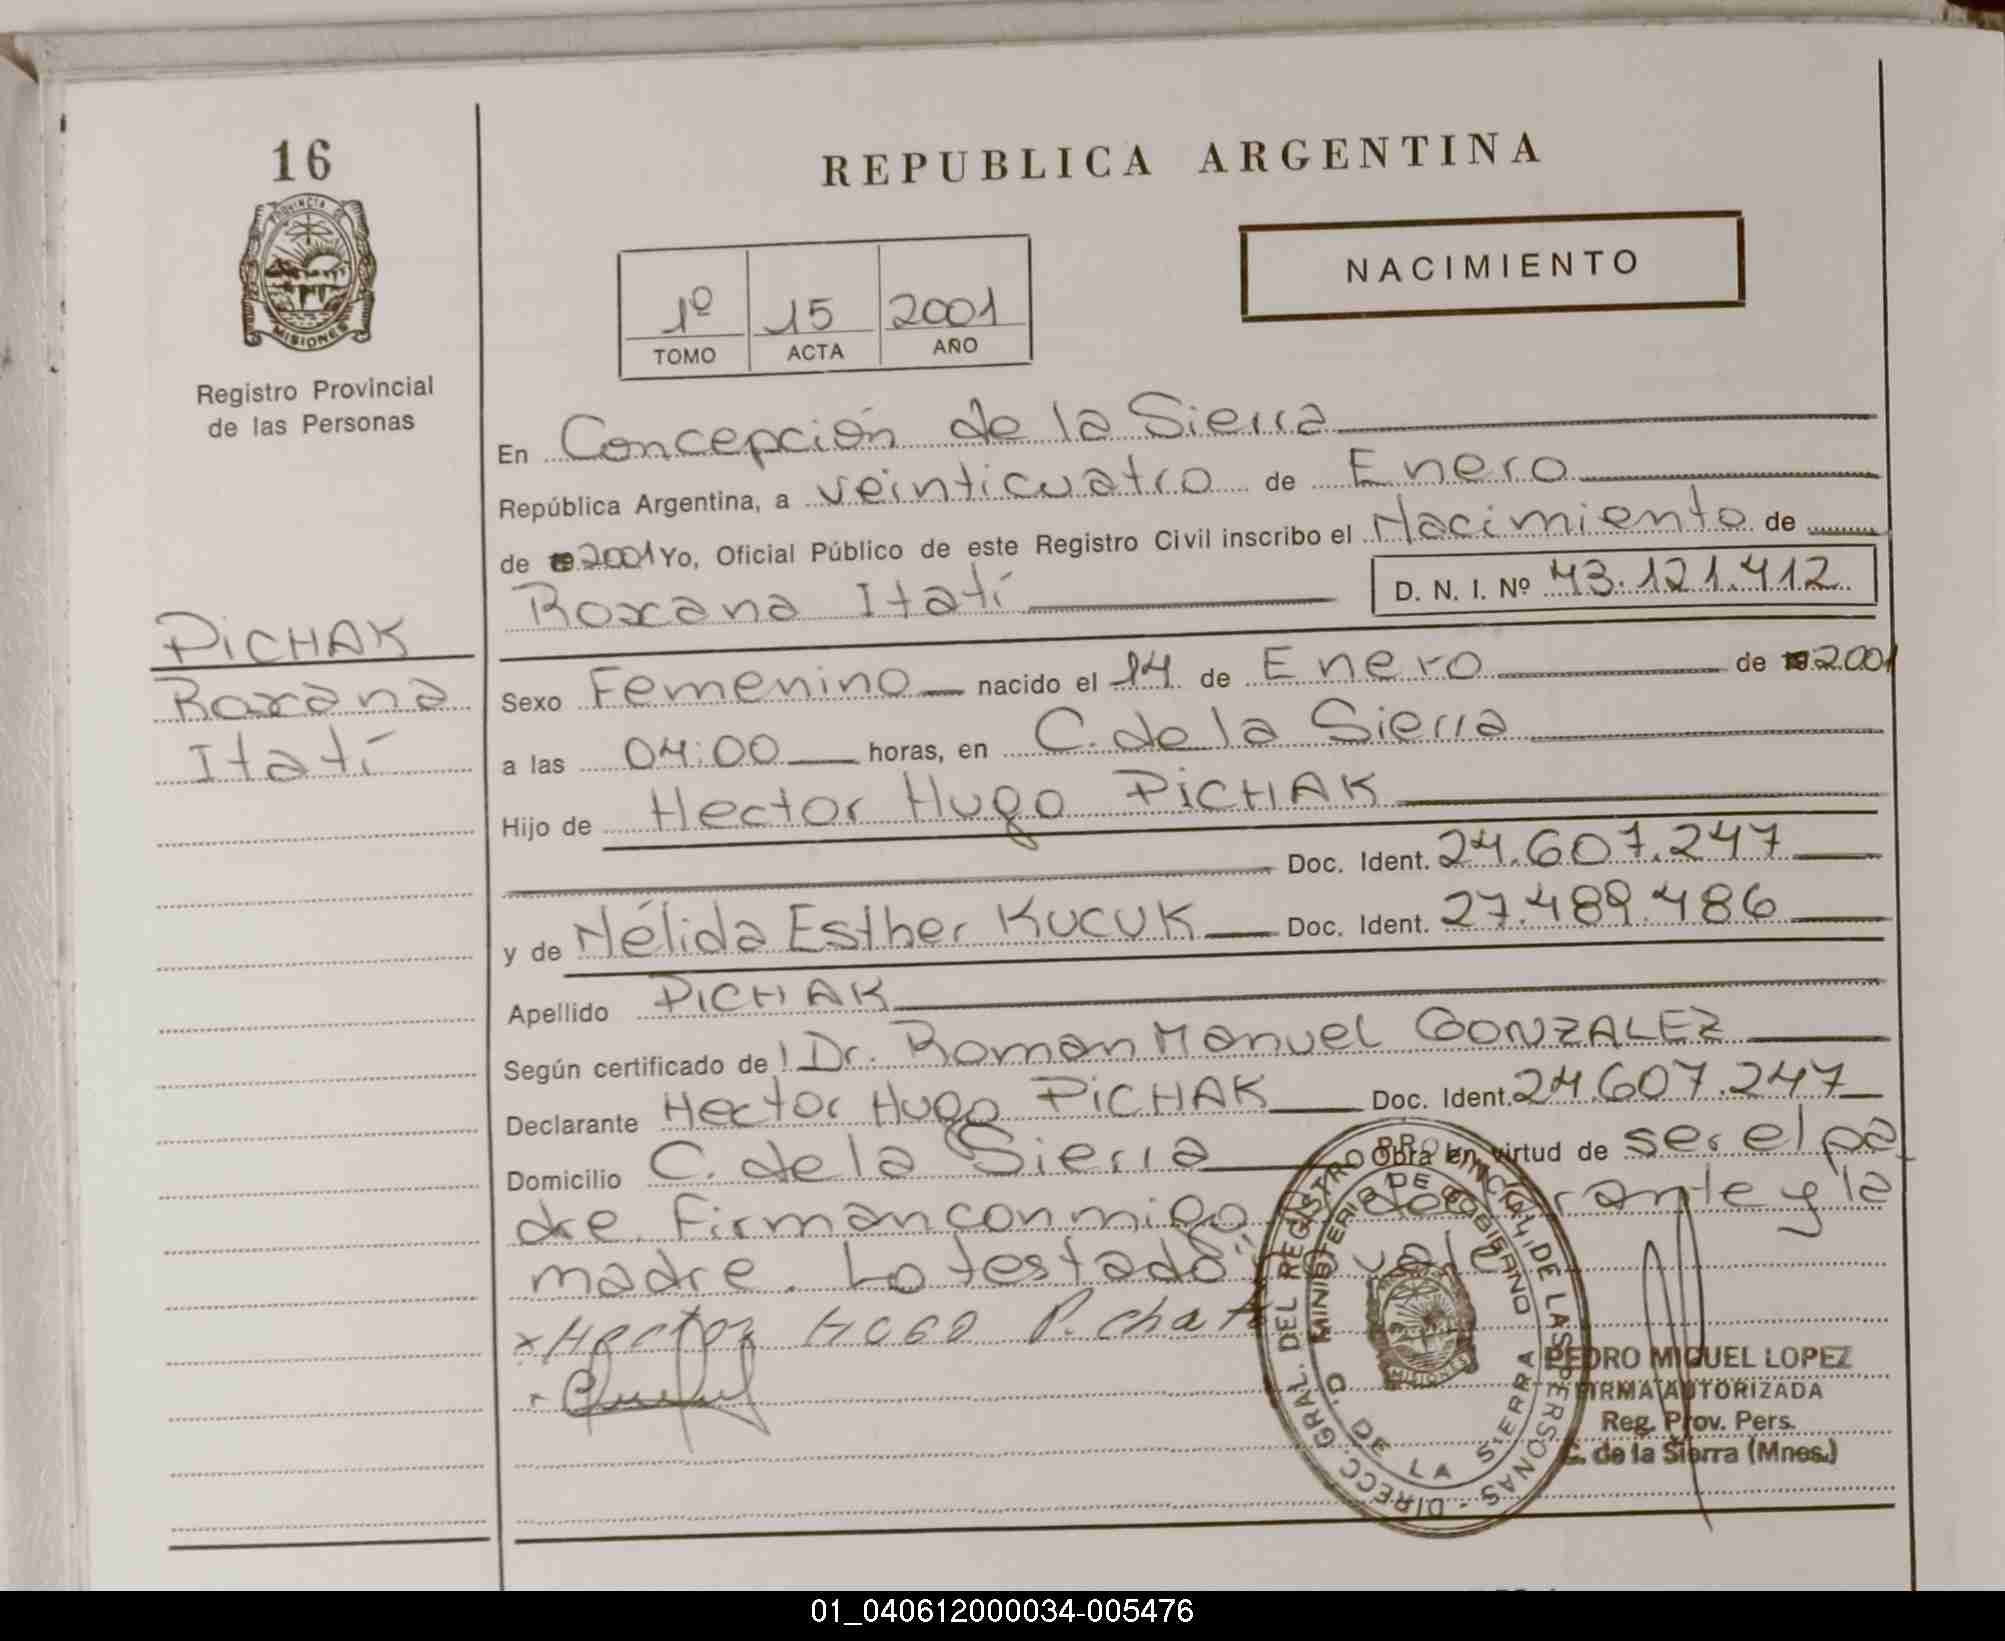 16
PROVINCIA DE
MISIONES
Registro Provincial
de las Personas
PICHAK
Roxana
Itatí
REPUBLICA ARGENTINA
NACIMIENTO
1º 15 2001
TOMO ACTA AÑO
En Concepción de la Sierra
República Argentina, a veinticuatro de Enero
de 2001 Yo, Oficial Público de este Registro Civil inscribo el Nacimiento de
Roxana Itatí D. N. I. Nº 43.121.412
Sexo Femenino nacido el 14 de Enero de 2001
a las 04:00 horas, en C. de la Sierra
Hijo de Hector Hugo PICHAK
Doc. Ident. 24.607.247
y de Nélida Esther KUCUK Doc. Ident. 27.489.486
Apellido PICHAK
Según certificado de l Dr. Roman Manuel GONZALEZ
Declarante Hector Hugo PICHAK Doc. Ident. 24.607.247
Domicilio C. de la Sierra Obra en virtud de ser el pa
dre. Firman conmigo declarante y la
madre. Lo testado vale
x Hector HUGO Pichak
DIRECC. GRAL. DEL REGISTRO PROVINCIAL DE LAS PERSONAS
MINISTERIO DE GOBIERNO
C. DE LA SIERRA
MISIONES
PEDRO MIGUEL LOPEZ
FIRMA AUTORIZADA
Reg. Prov. Pers.
C. de la Sierra (Mnes.)
01_040612000034-005476